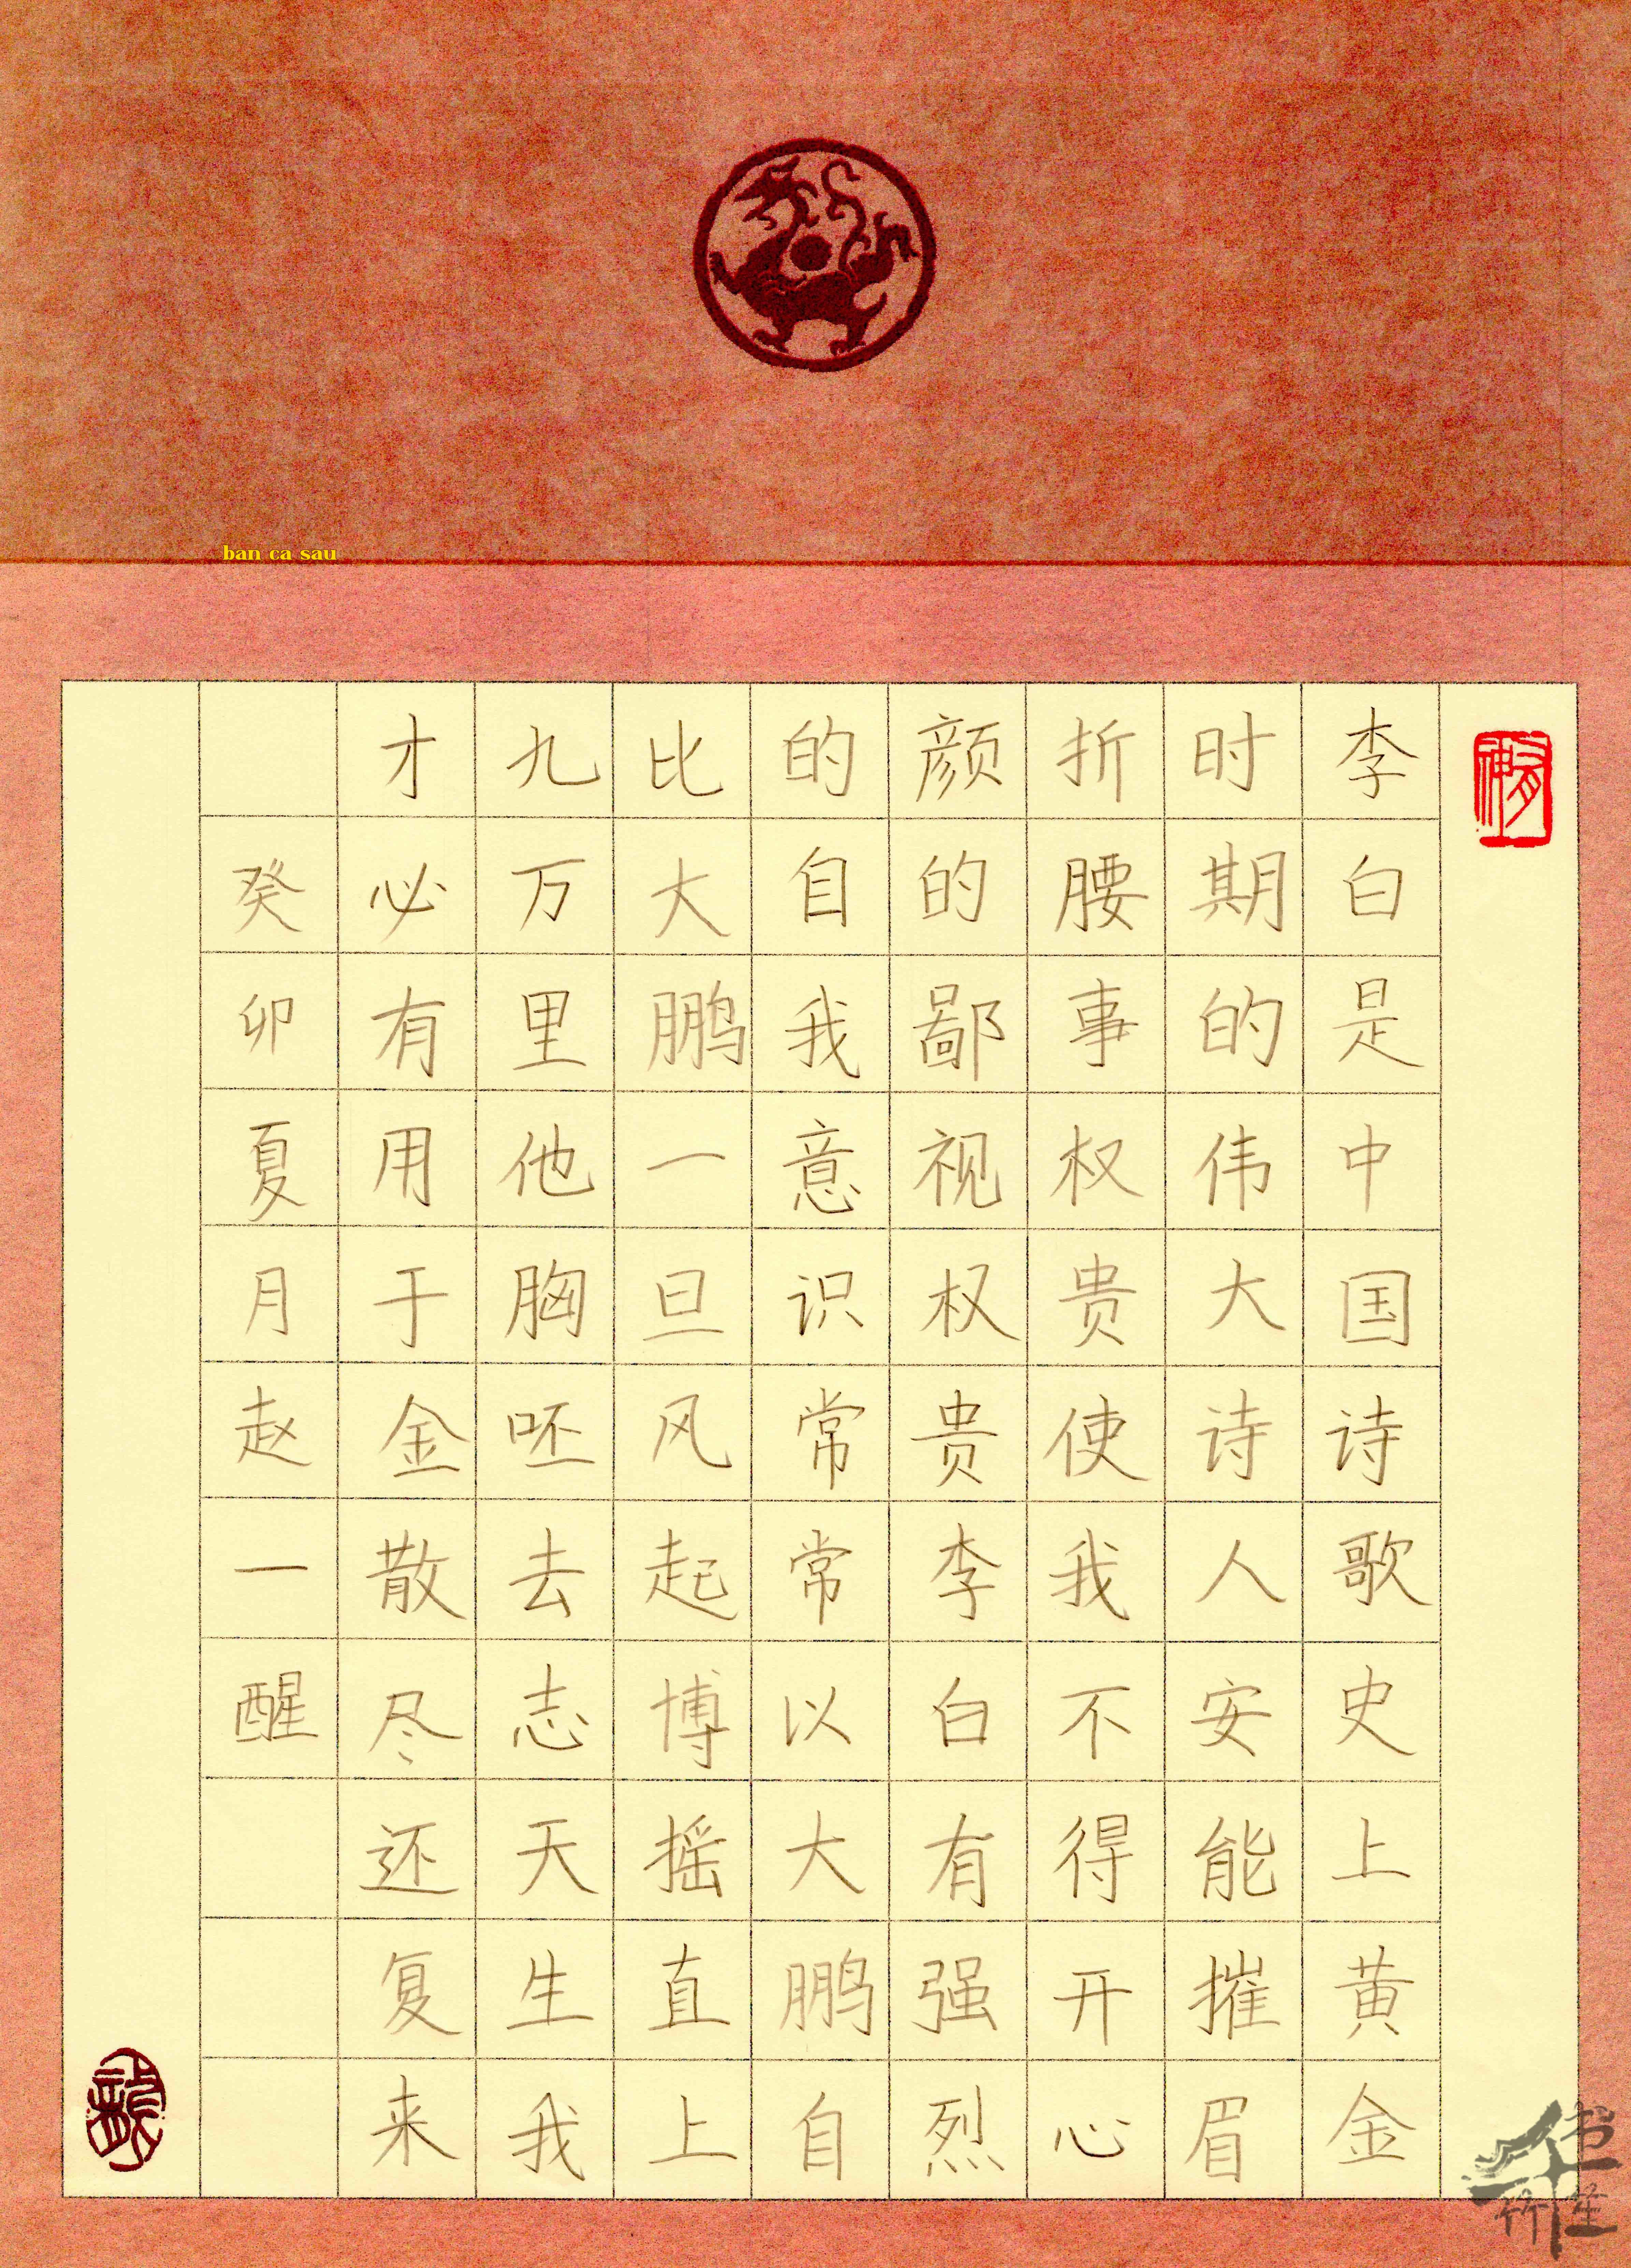 ban ca sau
李白是中国诗歌史上黄金
时期的伟大诗人安能摧眉
折腰事权贵使我不得开心
颜的鄙视权贵李白有强烈
的自我意识常常以大鹏自
比大鹏一旦风起博摇直上
九万里他胸呸去志天生我
才必有用于金散尽还复来
癸卯夏月赵一醒